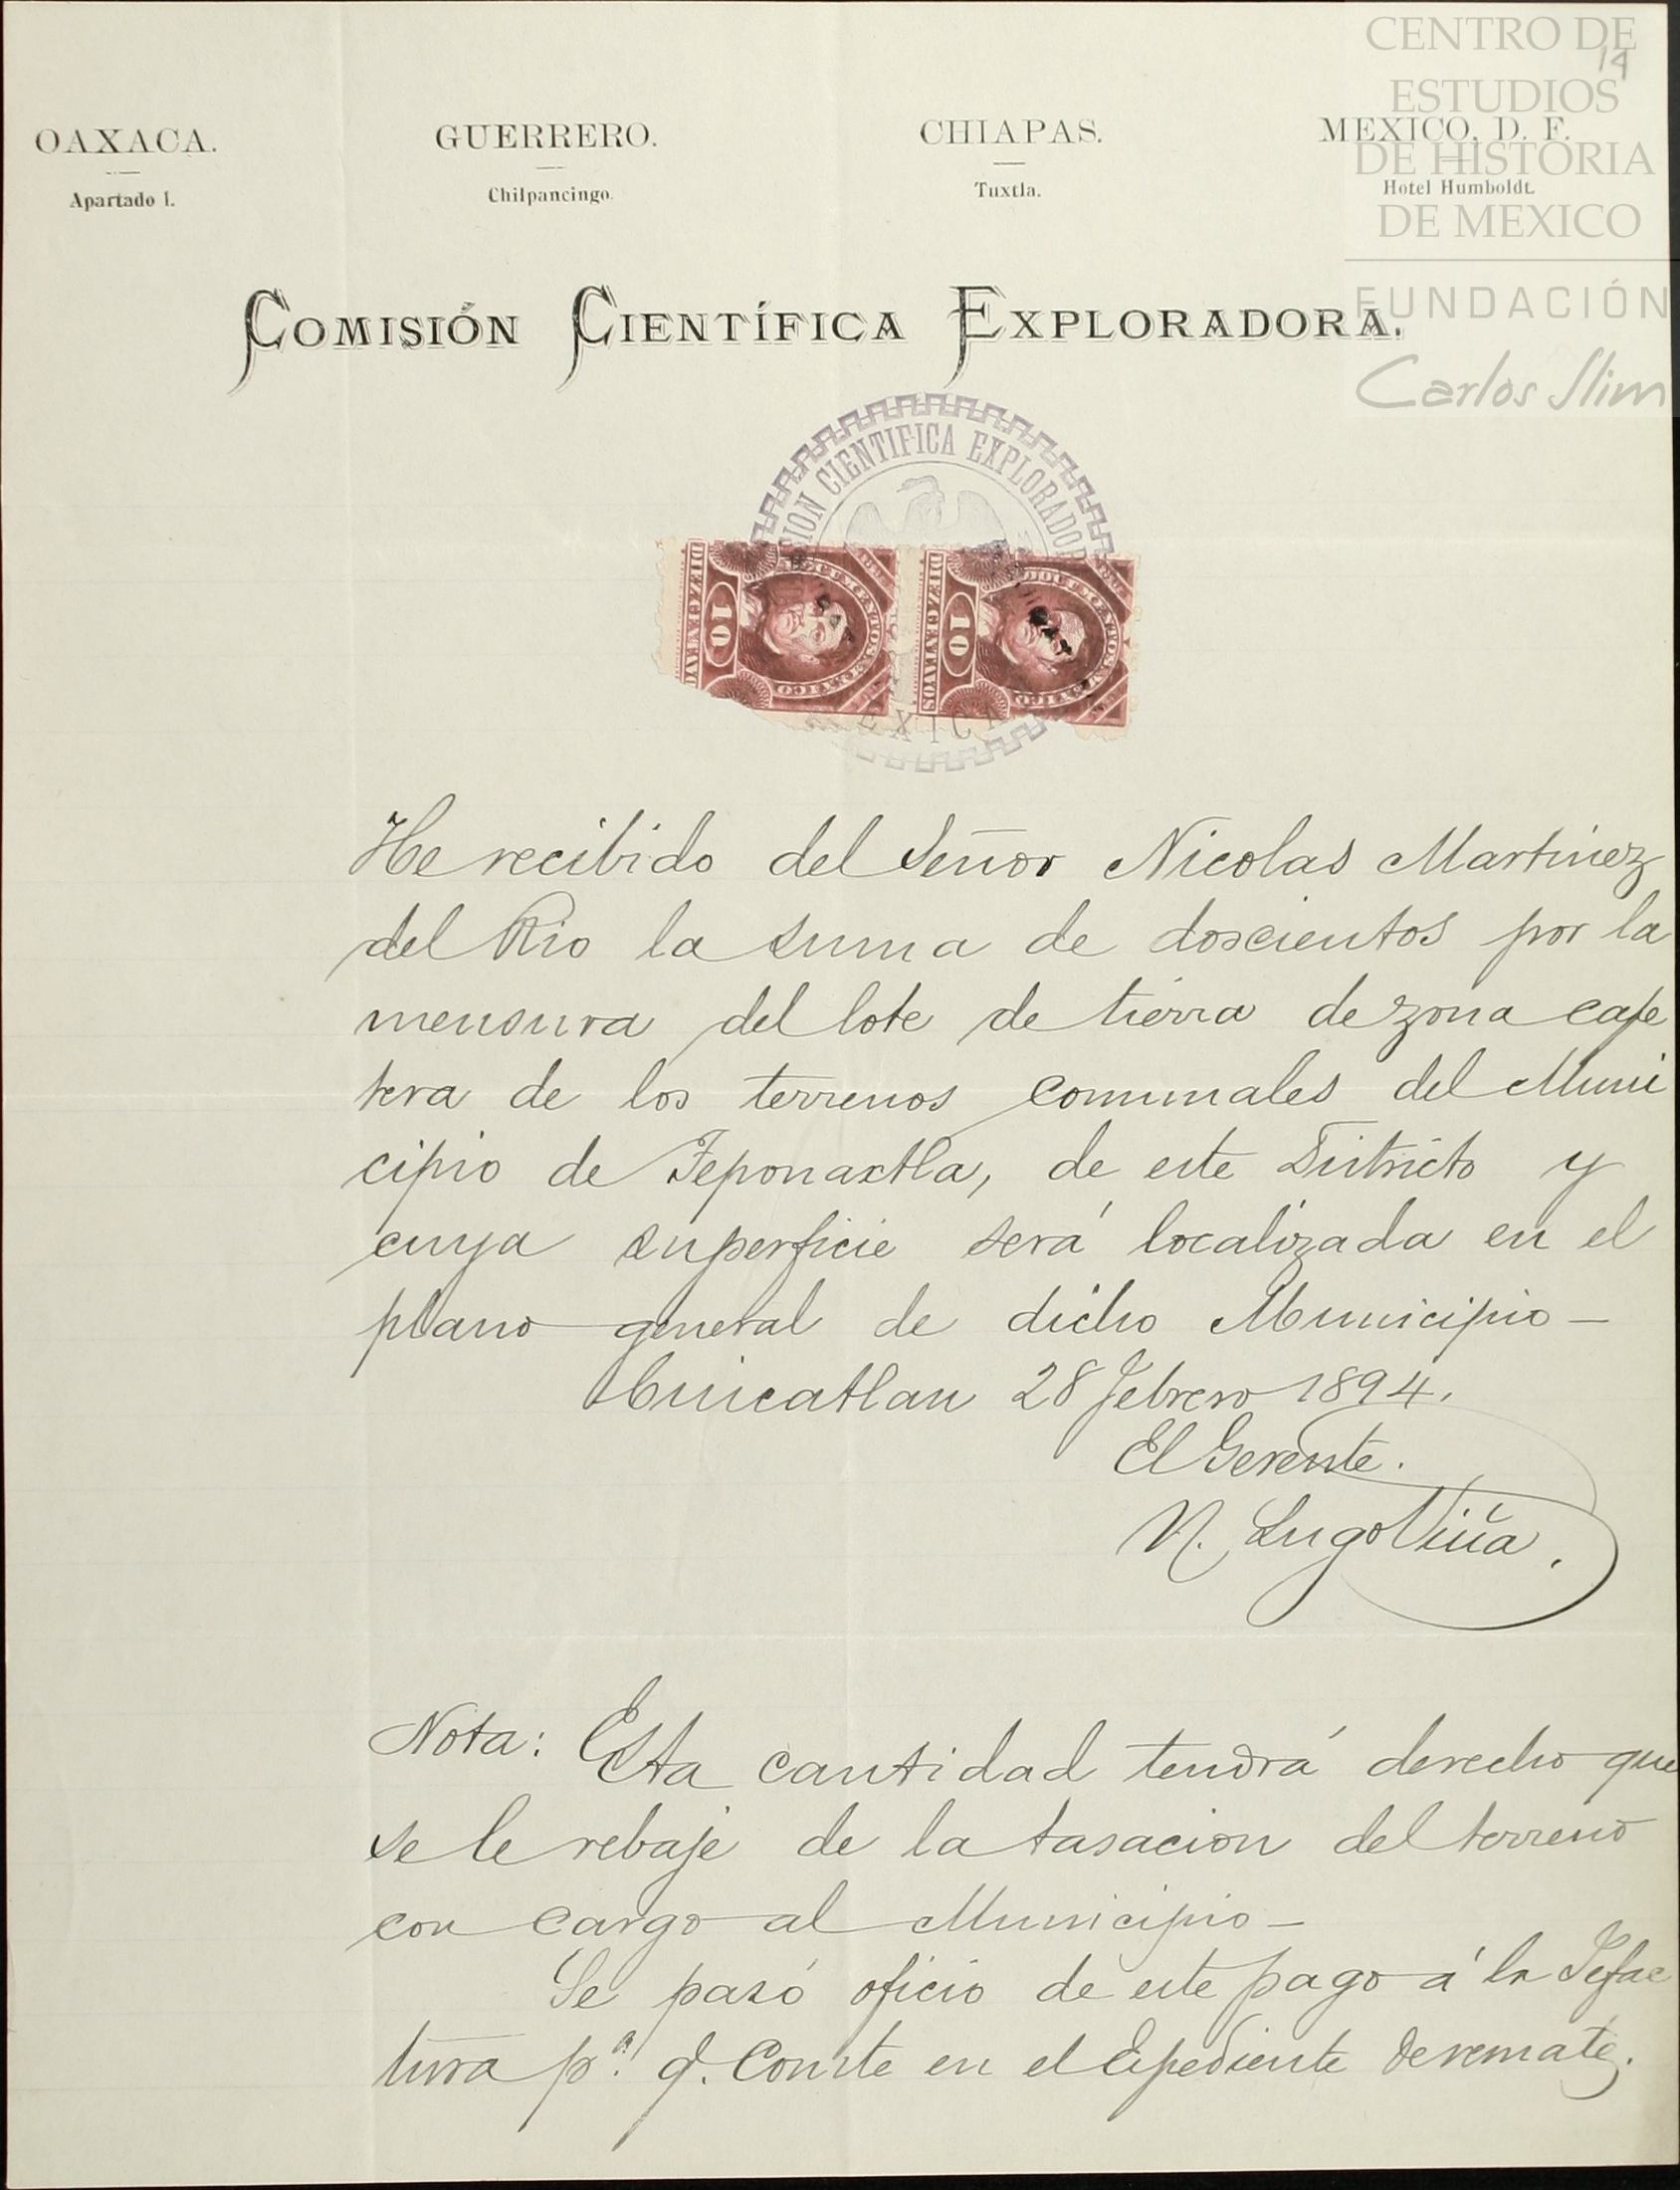 CENTRO DE
ESTUDIOS
DE HISTORIA
DE MEXICO
FUNDACIÓN
Carlos Slim
19
OAXACA. GUERRERO. CHIAPAS. MEXICO, D. F.
Apartado 1. Chilpancingo. Tuxtla. Hotel Humboldt.
COMISIÓN CIENTÍFICA EXPLORADORA.
SION CIENTIFICA EXPLORADOR
DIEZ CENTAVO 10 DOCUMENTOS MEXICO
DIEZ CENTAVOS 10 DOCUMENTOS MEXICO
MEXICA
He recibido del Señor Nicolas Martinez
del Rio la suma de doscientos por la
mensura del lote de tierra de zona cafe
tera de los terrenos comunales del Muni
cipio de Teponaxtla, de este Districto y
cuya superficie será localizada en el
plano general de dicho Municipio—
Cuicatlan 28 Febrero 1894.
El Gerente.
N. Lugo Viña.
Nota: Esta cantidad tendrá derecho que
se le rebaje de la tasacion del terreno
con cargo al Municipio—
Se pasó oficio de este pago á la Jefac
tura pª. q. Conste en el Expediente de remate.